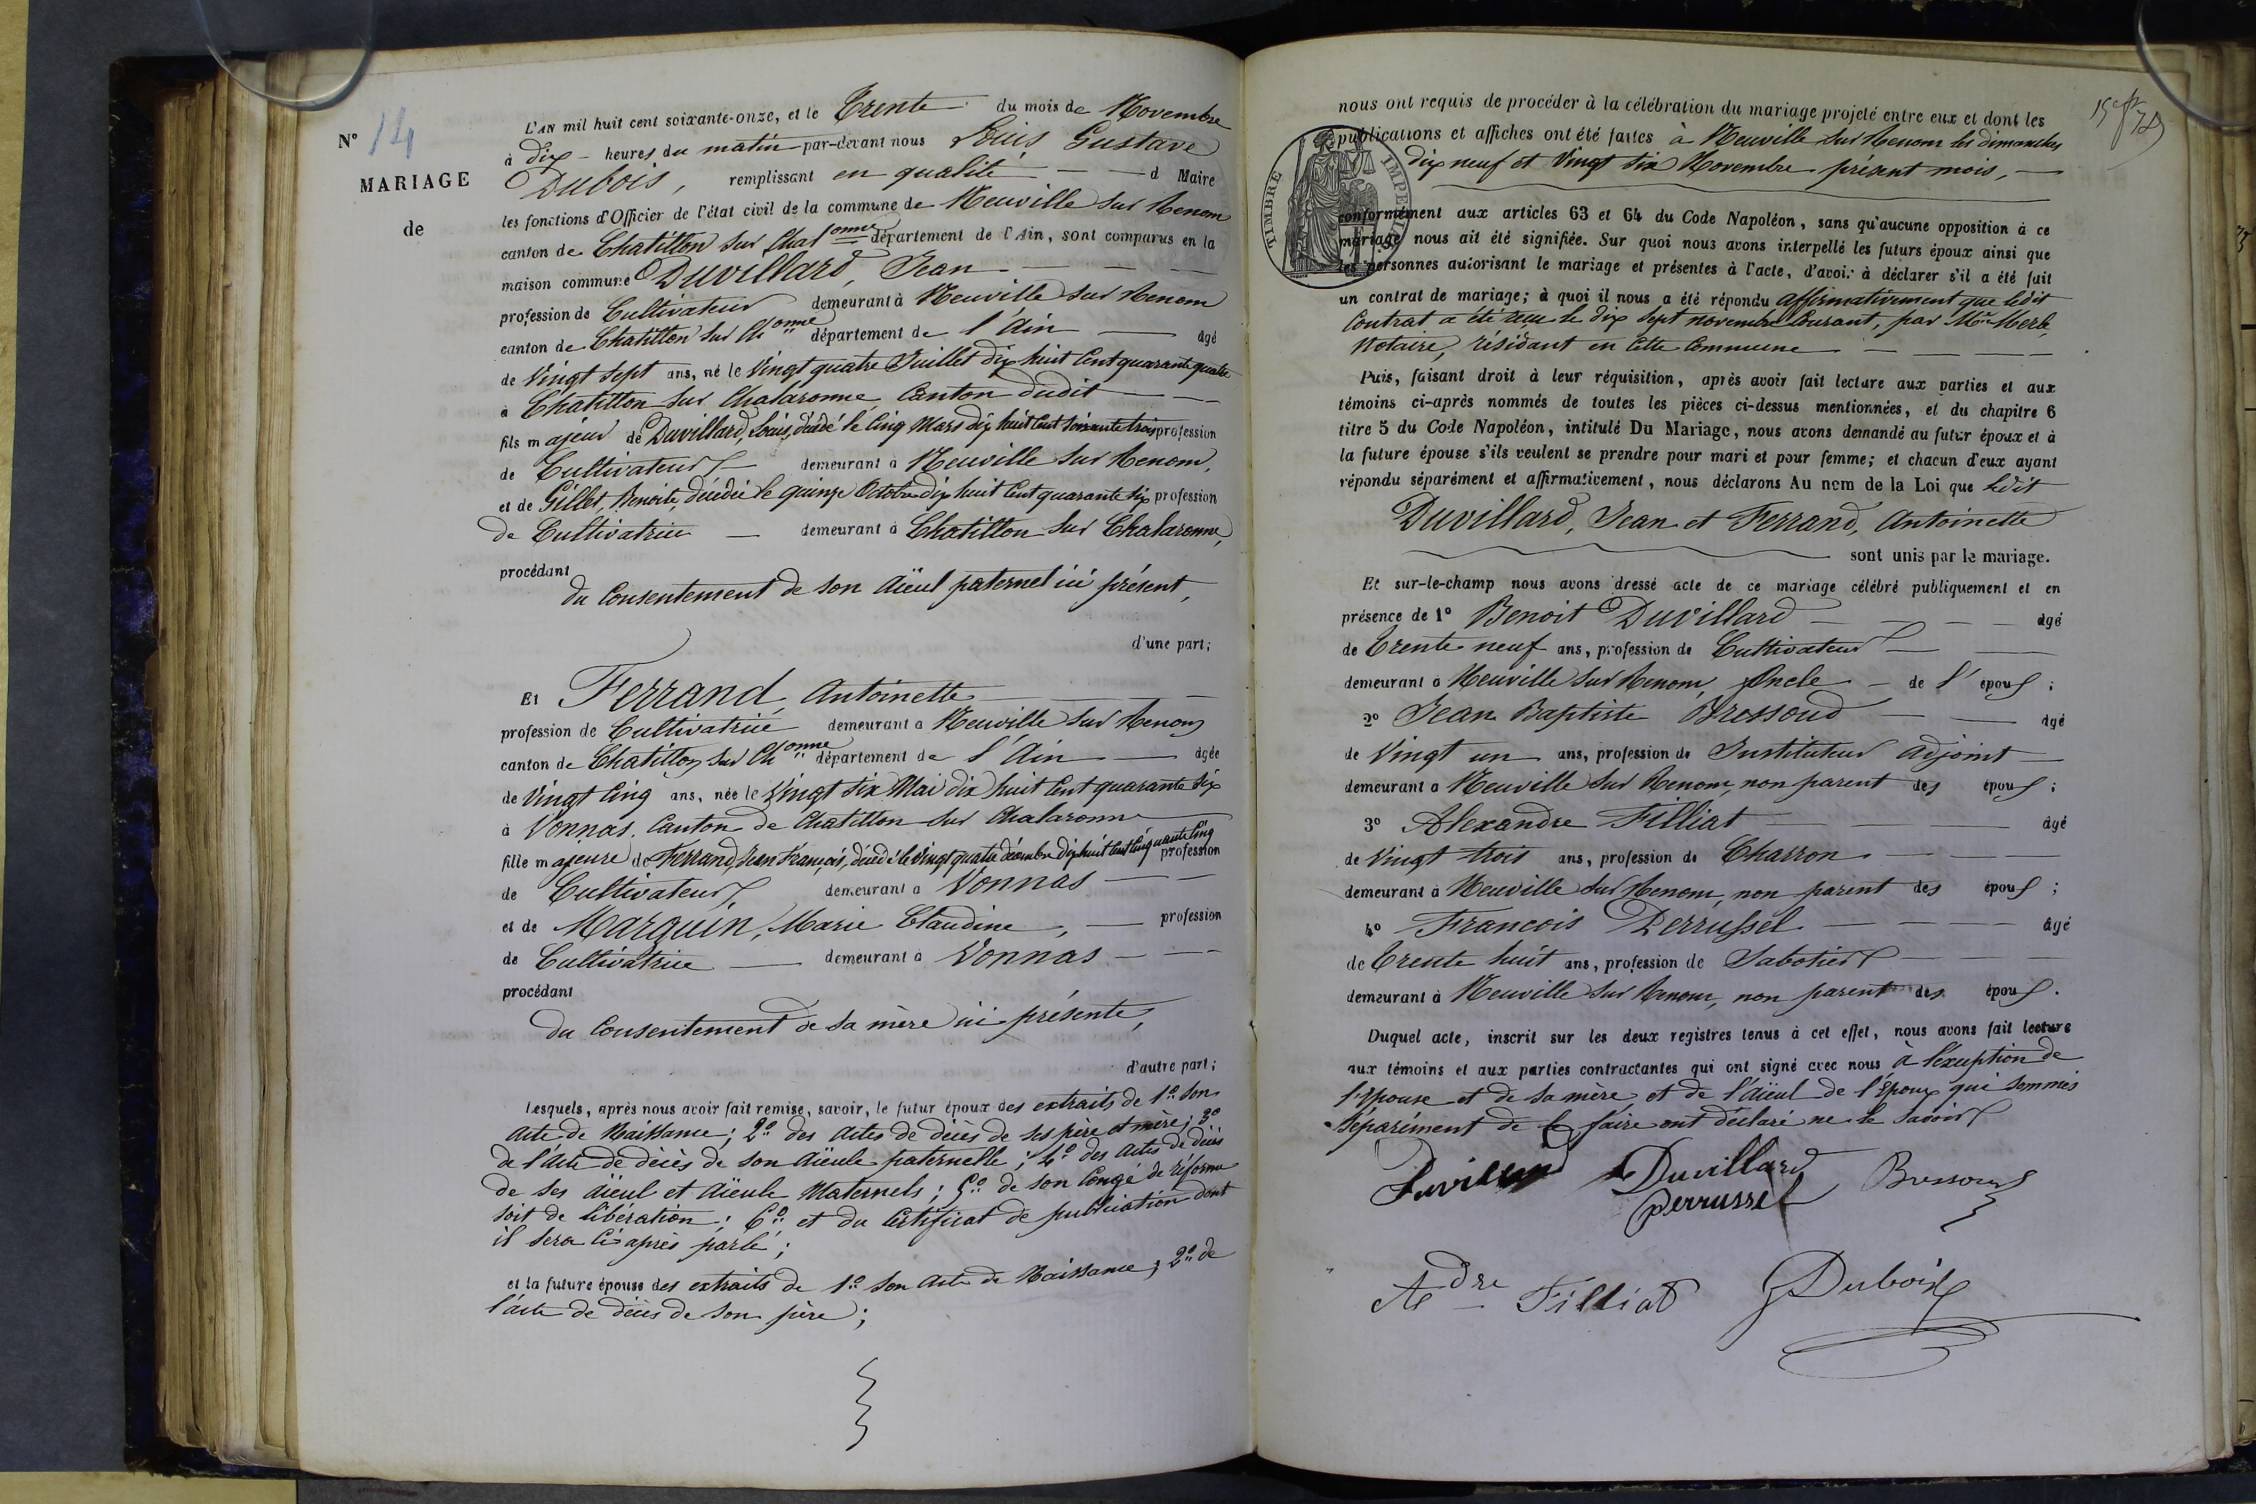 N° 14
MARIAGE
de
L'AN mil huit cent soixante-onze, et le Trente du mois de Novembre
à dix heures du matin par-devant nous Louis Gustave
Dubois, remplissant en qualité d Maire
les fonctions d'Officier de l'état civil de la commune de Neuville sur Renom
canton de Chatillon sur Chalaronne département de l'Ain, sont comparus en la
maison commune Duvillard, Jean
profession de Cultivateur demeurant à Neuville sur Renom
canton de Chatillon sur Chonne département de l'Ain âgé
de Vingt sept ans, né le Vingt quatre Juillet dix huit Cent quarante quatre
à Chatillon sur Chalaronne, Canton dudit
fils majeur de Duvillard, Louis, décédé le Cinq Mars dix huit Cent soixante trois profession
de Cultivateur demeurant à Neuville sur Renom,
et de Gillet, Benoite, décédée le quinze Octobre dix huit Cent quarante six profession
de Cultivatrice demeurant à Chatillon sur Chalaronne,
procédant
du Consentement de son Aïeul paternel ici présent,
d'une part;
Et Ferrand, Antoinette
profession de Cultivatrice demeurant à Neuville sur Renom
canton de Chatillon sur Chonne département de l'Ain âgée
de Vingt Cinq ans, née le Vingt six Mai dix huit Cent quarante six
à Vonnas, Canton de Chatillon sur Chalaronne
fille majeure de Ferrand, Jean François, décédé le Vingt quatre décembre dix huit Cent Cinquante Cinq profession
de Cultivateur, demeurant à Vonnas
et de Marguin, Marie Claudine, profession
de Cultivatrice demeurant à Vonnas
procédant
du Consentement de sa mère ici présente,
d'autre part;
Lesquels, après nous avoir fait remise, savoir, le futur époux des extraits de 1° Son
Acte de Naissance; 2° des Actes de décès de ses père et mère; 3°
de l'Acte de décès de son Aïeule paternelle; 4° des Actes de décès
de ses Aïeul et Aïeule Maternels; 5° de son Congé de réforme
soit de libération; 6° et du Certificat de publication dont
il sera Ci après parlé;
et la future épouse des extraits de 1° Son Acte de Naissance; 2° de
l'acte de décès de son père;
nous ont requis de procéder à la célébration du mariage projeté entre eux et dont les
publications et affiches ont été faites à Neuville sur Renom les dimanches
dix neuf et Vingt six Novembre présent mois,
TIMBRE IMPERIAL
conformément aux articles 63 et 64 du Code Napoléon, sans qu'aucune opposition à ce
mariage nous ait été signifiée. Sur quoi nous avons interpellé les futurs époux ainsi que
les personnes autorisant le mariage et présentes à l'acte, d'avoir à déclarer s'il a été fait
un contrat de mariage; à quoi il nous a été répondu affirmativement que ledit
Contrat a été reçu le dix sept novembre Courant, par Me Merle,
Notaire, résidant en Cette Commune
Puis, faisant droit à leur réquisition, après avoir fait lecture aux parties et aux
témoins ci-après nommés de toutes les pièces ci-dessus mentionnées, et du chapitre 6
titre 5 du Code Napoléon, intitulé Du Mariage, nous avons demandé au futur époux et à
la future épouse s'ils veulent se prendre pour mari et pour femme; et chacun d'eux ayant
répondu séparément et affirmativement, nous déclarons Au nom de la Loi que ledit
Duvillard, Jean et Ferrand, Antoinette
sont unis par le mariage.
Et sur-le-champ nous avons dressé acte de ce mariage célébré publiquement et en
présence de 1° Benoit Duvillard âgé
de Trente neuf ans, profession de Cultivateur
demeurant à Neuville sur Renom, Oncle de l'époux;
2° Jean Baptiste Bressoud âgé
de Vingt un ans, profession de Instituteur Adjoint
demeurant à Neuville sur Renom, non parent des époux;
3° Alexandre Filliat âgé
de Vingt trois ans, profession de Charron
demeurant à Neuville sur Renom, non parent des époux;
4° François Perrussel âgé
de Trente huit ans, profession de Sabotier
demeurant à Neuville sur Renom, non parent des époux.
Duquel acte, inscrit sur les deux registres tenus à cet effet, nous avons fait lecture
aux témoins et aux parties contractantes qui ont signé avec nous à l'exception de
l'Epouse et de sa mère et de l'aïeul de l'Epoux qui sommés
séparément de le faire ont déclaré ne le savoir
Duvillard Duvillard Bressoud
Perrussel
Adre Filliat GDubois